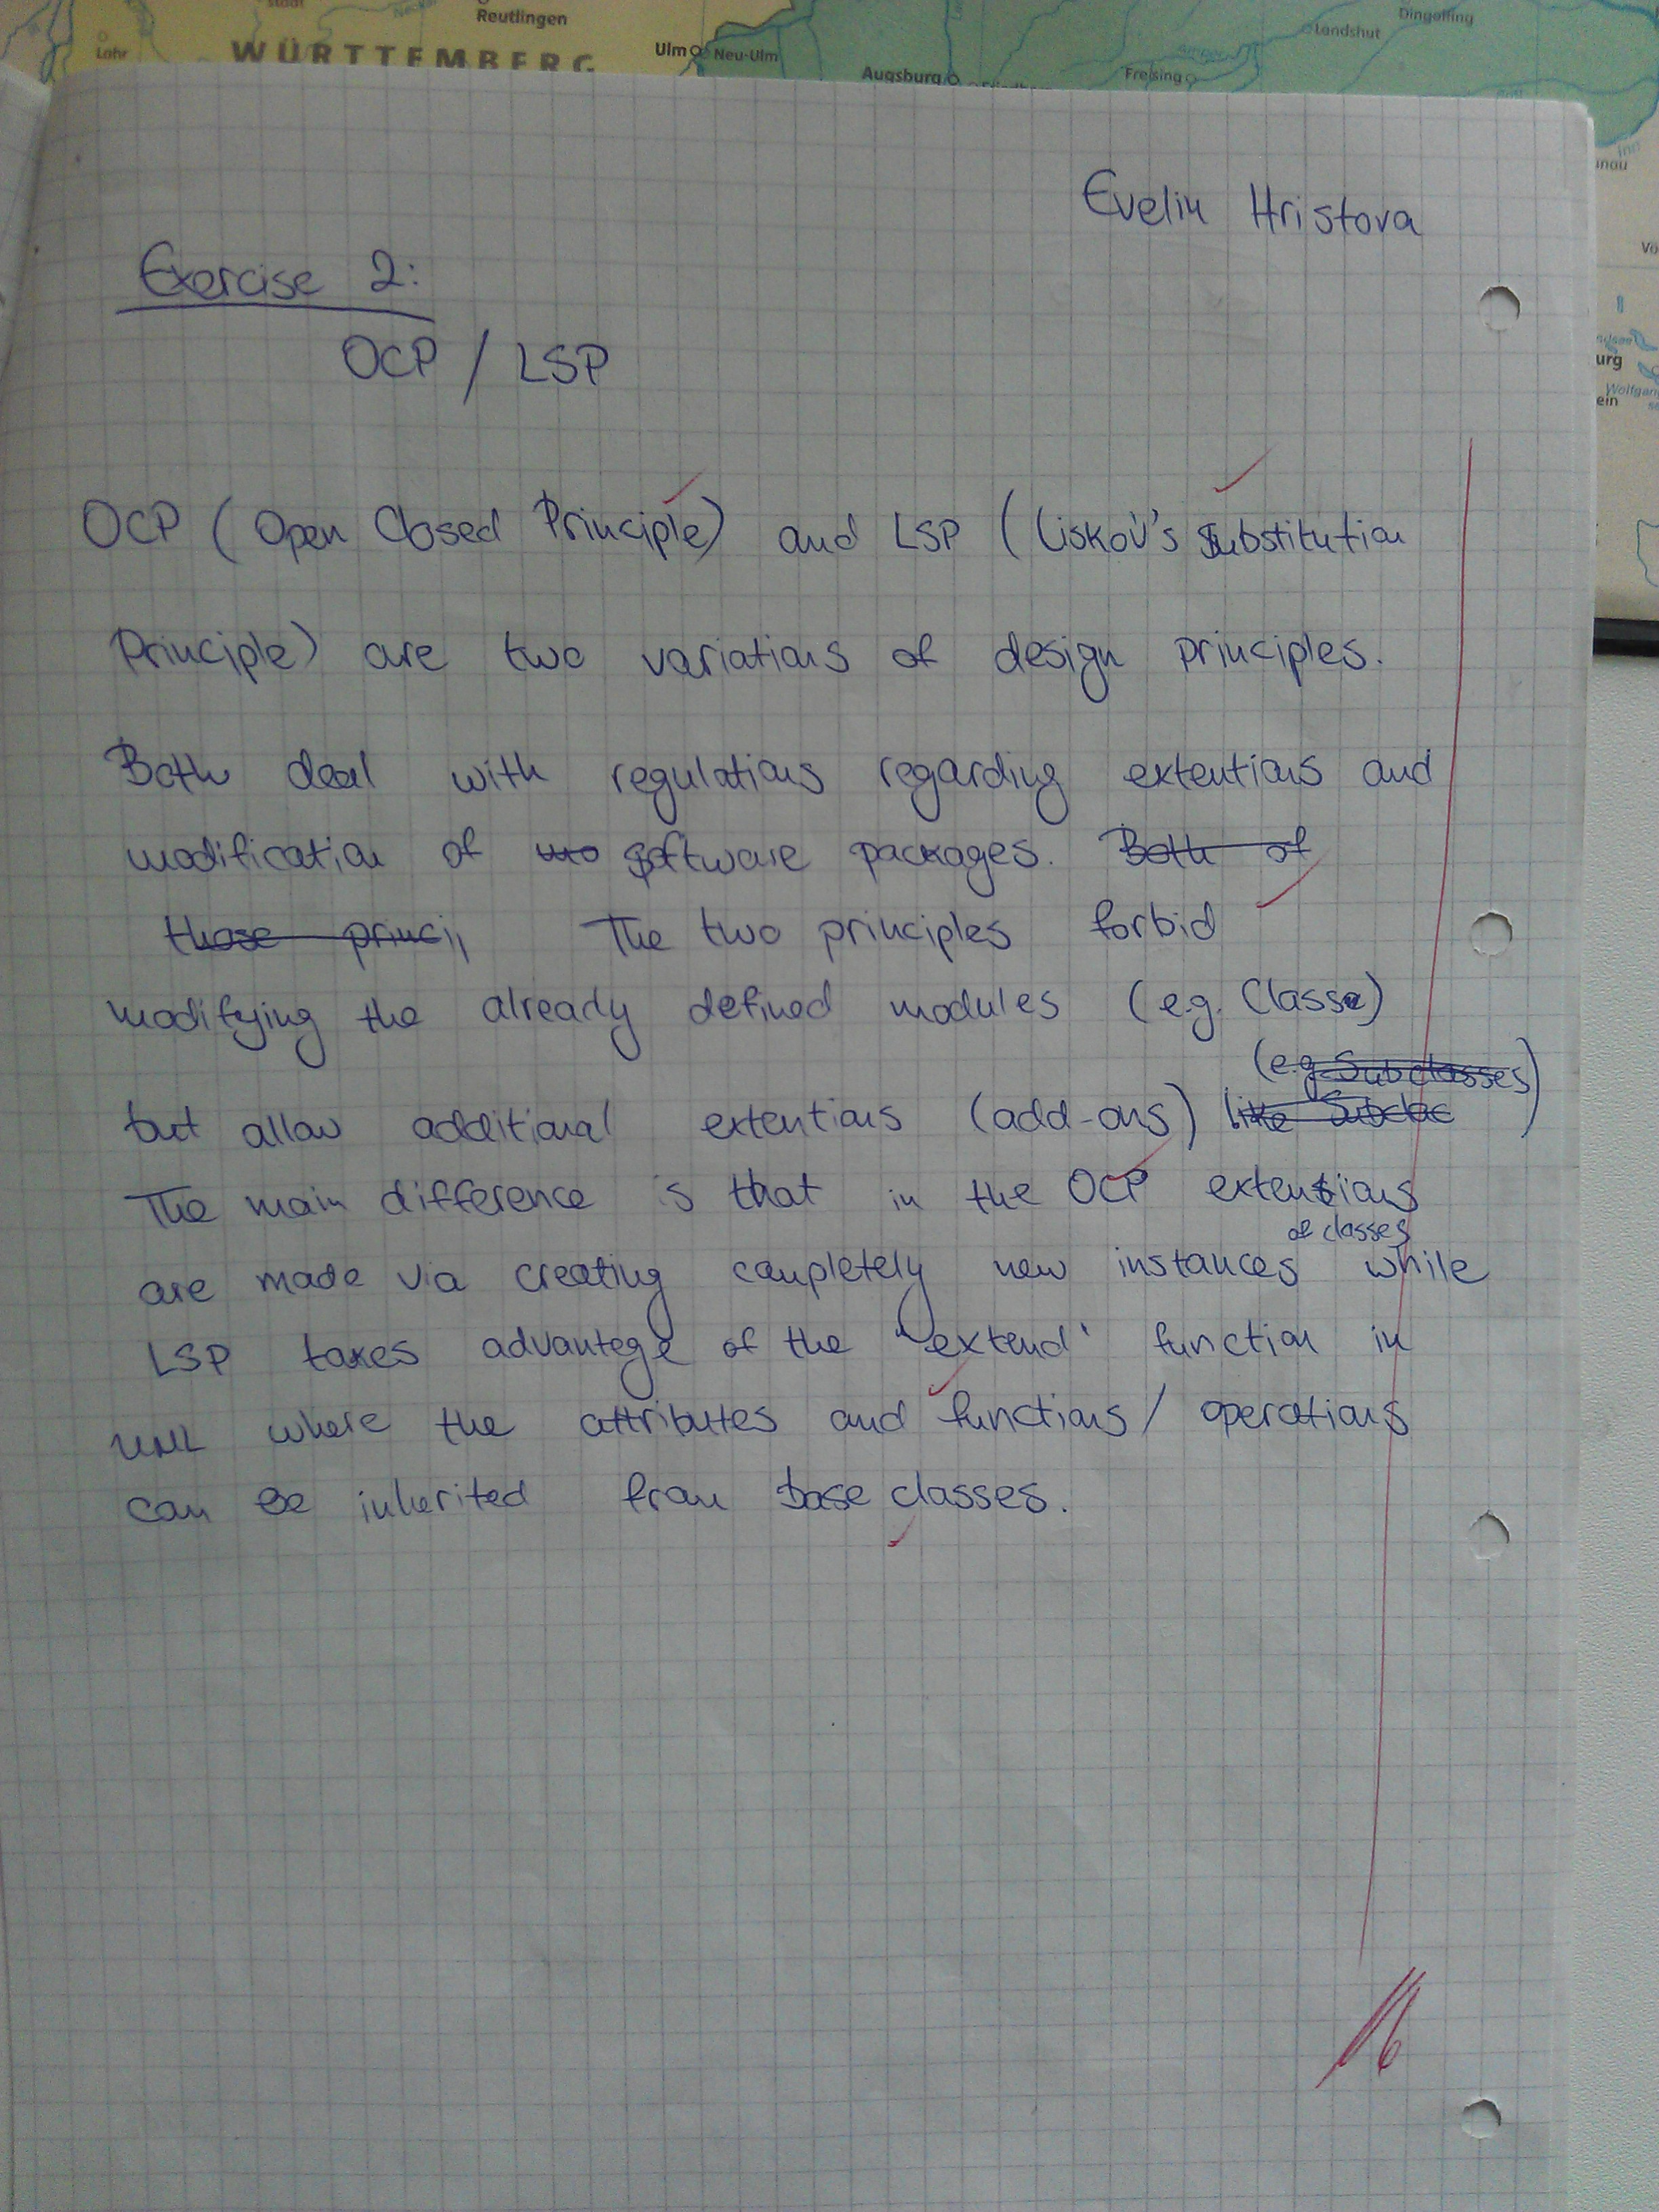 Reutlingen
Dingolfing
Landshut
Lahr
WÜRTTEMBERG
Ulm
Neu-Ulm
Augsburg
Freising
Inn
Evelin Hristova
Exercise 2:
OCP / LSP
OCP (Open Closed Principle) and LSP (Liskov's Substitution
Principle) are two variations of design principles.
Both deal with regulations regarding extentions and
modification of software packages. Both of
those princi, The two principles forbid
modifying the already defined modules (e.g. Classe)
(e.g. Subclasses)
but allow additional extentions (add-ons) like Subclac
The main difference is that in the OCP extensions
of classes
are made via creating completely new instances while
LSP takes advantege of the "extend' function in
UML where the attributes and functions / operations
can be inherited from base classes.
urg
ein
Wolfgan